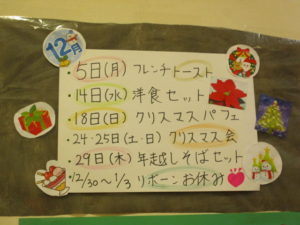 12月
・5日(月) フレンチトースト
・14日(水) 洋食セット
・18日(日) クリスマスパフェ
・24・25日(土・日) クリスマス会
・29日(木) 年越しそばセット
・12/30〜1/3 リボーンお休み